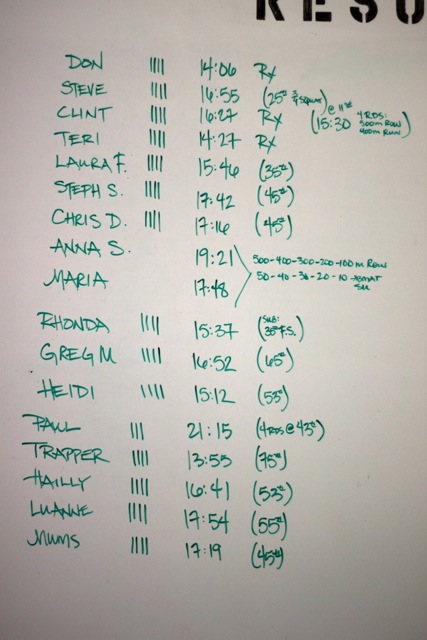 RESU
DON |||| 14:06 Rx
STEVE |||| 16:55 (25# 3/4 SQUAT)
CLINT |||| 16:27 Rx (15:30 @ 11# 4 RDS: 500m ROW 400m RUN)
TERI |||| 14:27 Rx
LAURA F. |||| 15:46 (35#)
STEPH S. |||| 17:42 (45#)
CHRIS D. |||| 17:16 (45#)
ANNA S. 19:21 500-400-300-200-100 m ROW
MARIA 17:48 50-40-30-20-10 ABMAT SU
RHONDA |||| 15:37 (SUB: 35# F.S.)
GREG M |||| 16:52 (65#)
HEIDI |||| 15:12 (53#)
PAUL ||| 21:15 (4 RDS @ 43#)
TRAPPER |||| 13:55 (75#)
HAILLY |||| 16:41 (53#)
LUANNE |||| 17:54 (55#)
MUMS |||| 17:19 (45#)